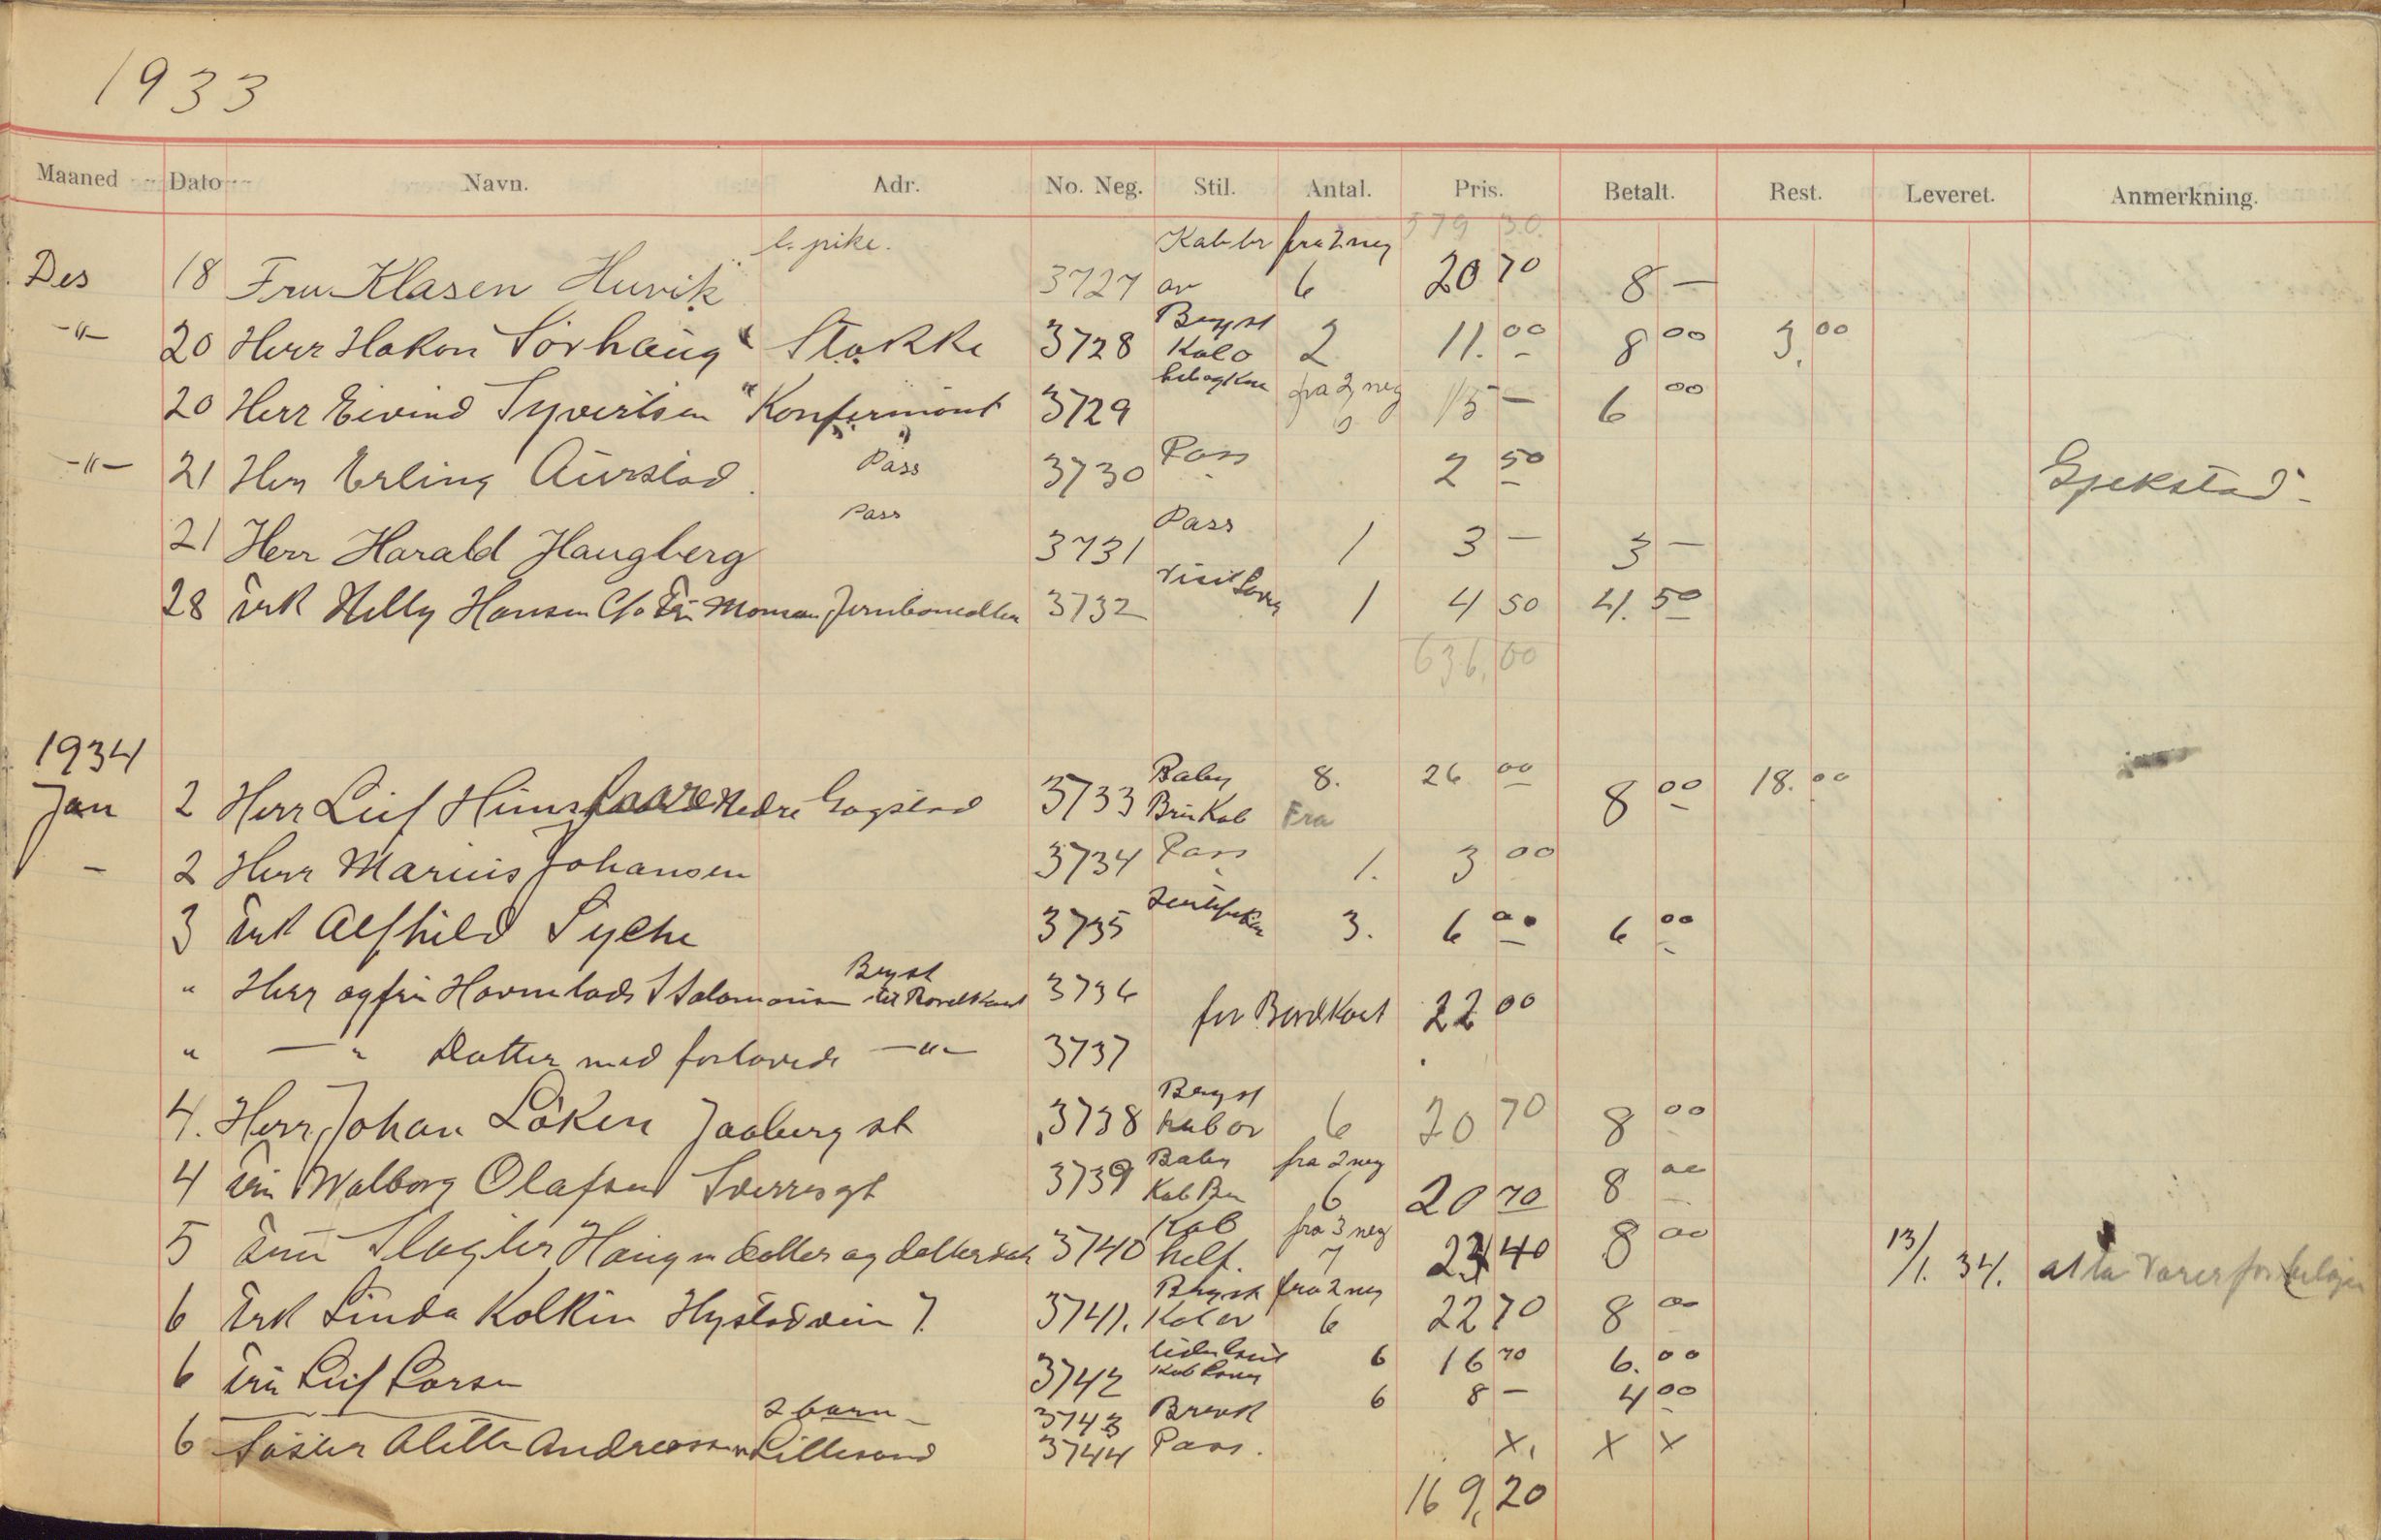 1933
Maaned Dato Navn. Adr. No. Neg. Stil. Antal. Pris. Betalt. Rest. Leveret. Anmerkning.
579 30.
l. pike. Kab br fra 2 neg
Des 18 Fru Klasen Huvik 3727 or 6 20 70 8 —
-"- 20 Herr Hakon Sörhaug Stokke 3728 Bryst Kab o 2 11.00 8 00 3.00
20 Herr Eivind Syvertsen Konfirmant 3729 hel og Kne fra 2 neg 15 — 6 00
-"- 21 Herr Erling Aurstad. Pass 3730 Pass 2 50 Gjekstad
21 Herr Harald Haugberg Pass 3731 Pass 1 3 — 3 —
28 Frk Helly Hansen C/o Fru Monsen Jernbanealleen 3732 Visit 1 4 50 4.50
636,00
1934
Jan 2 Herr Leif Nedre Gogstad 3733 Baby Brukab 8. Fra 26 00 8 00 18.00
- 2 Herr Marius Johansen 3734 Pass 1. 3 00
3 Frk Alfhild Lyche 3735 3. 6 00 6 00
" Herr og fru Havnelods Salomonsen Bryst til Bordkort 3736 for Bordkort 22 00
" — " Datter med forlovede -"- 3737
4. Herr Johan Löken Jaabergst 3738 Bryst kab or 6 20 70 8 00
4 Fru Walborg Olafsen Sverresgt 3739 Baby Kab Br fra 2 neg 6 20 70 8 00
5 Fru Slagter Haug m datter og 3740 Kab helf. fra 3 neg 7 23 40 8 00 13/1. 34. at ta varer for
6 Frk Linda Kolkin Hystadvein 7. 3741. Bryst Kab or fra 2 neg 6 22 70 8 00
6 Fru Leif Larsen 3742 6 16 70 6.00
2 barn 3743 Brevk 6 8 — 4 00
6 Söster Alette Andreassen Lillesand 3744 Pass. x, x x
169,20